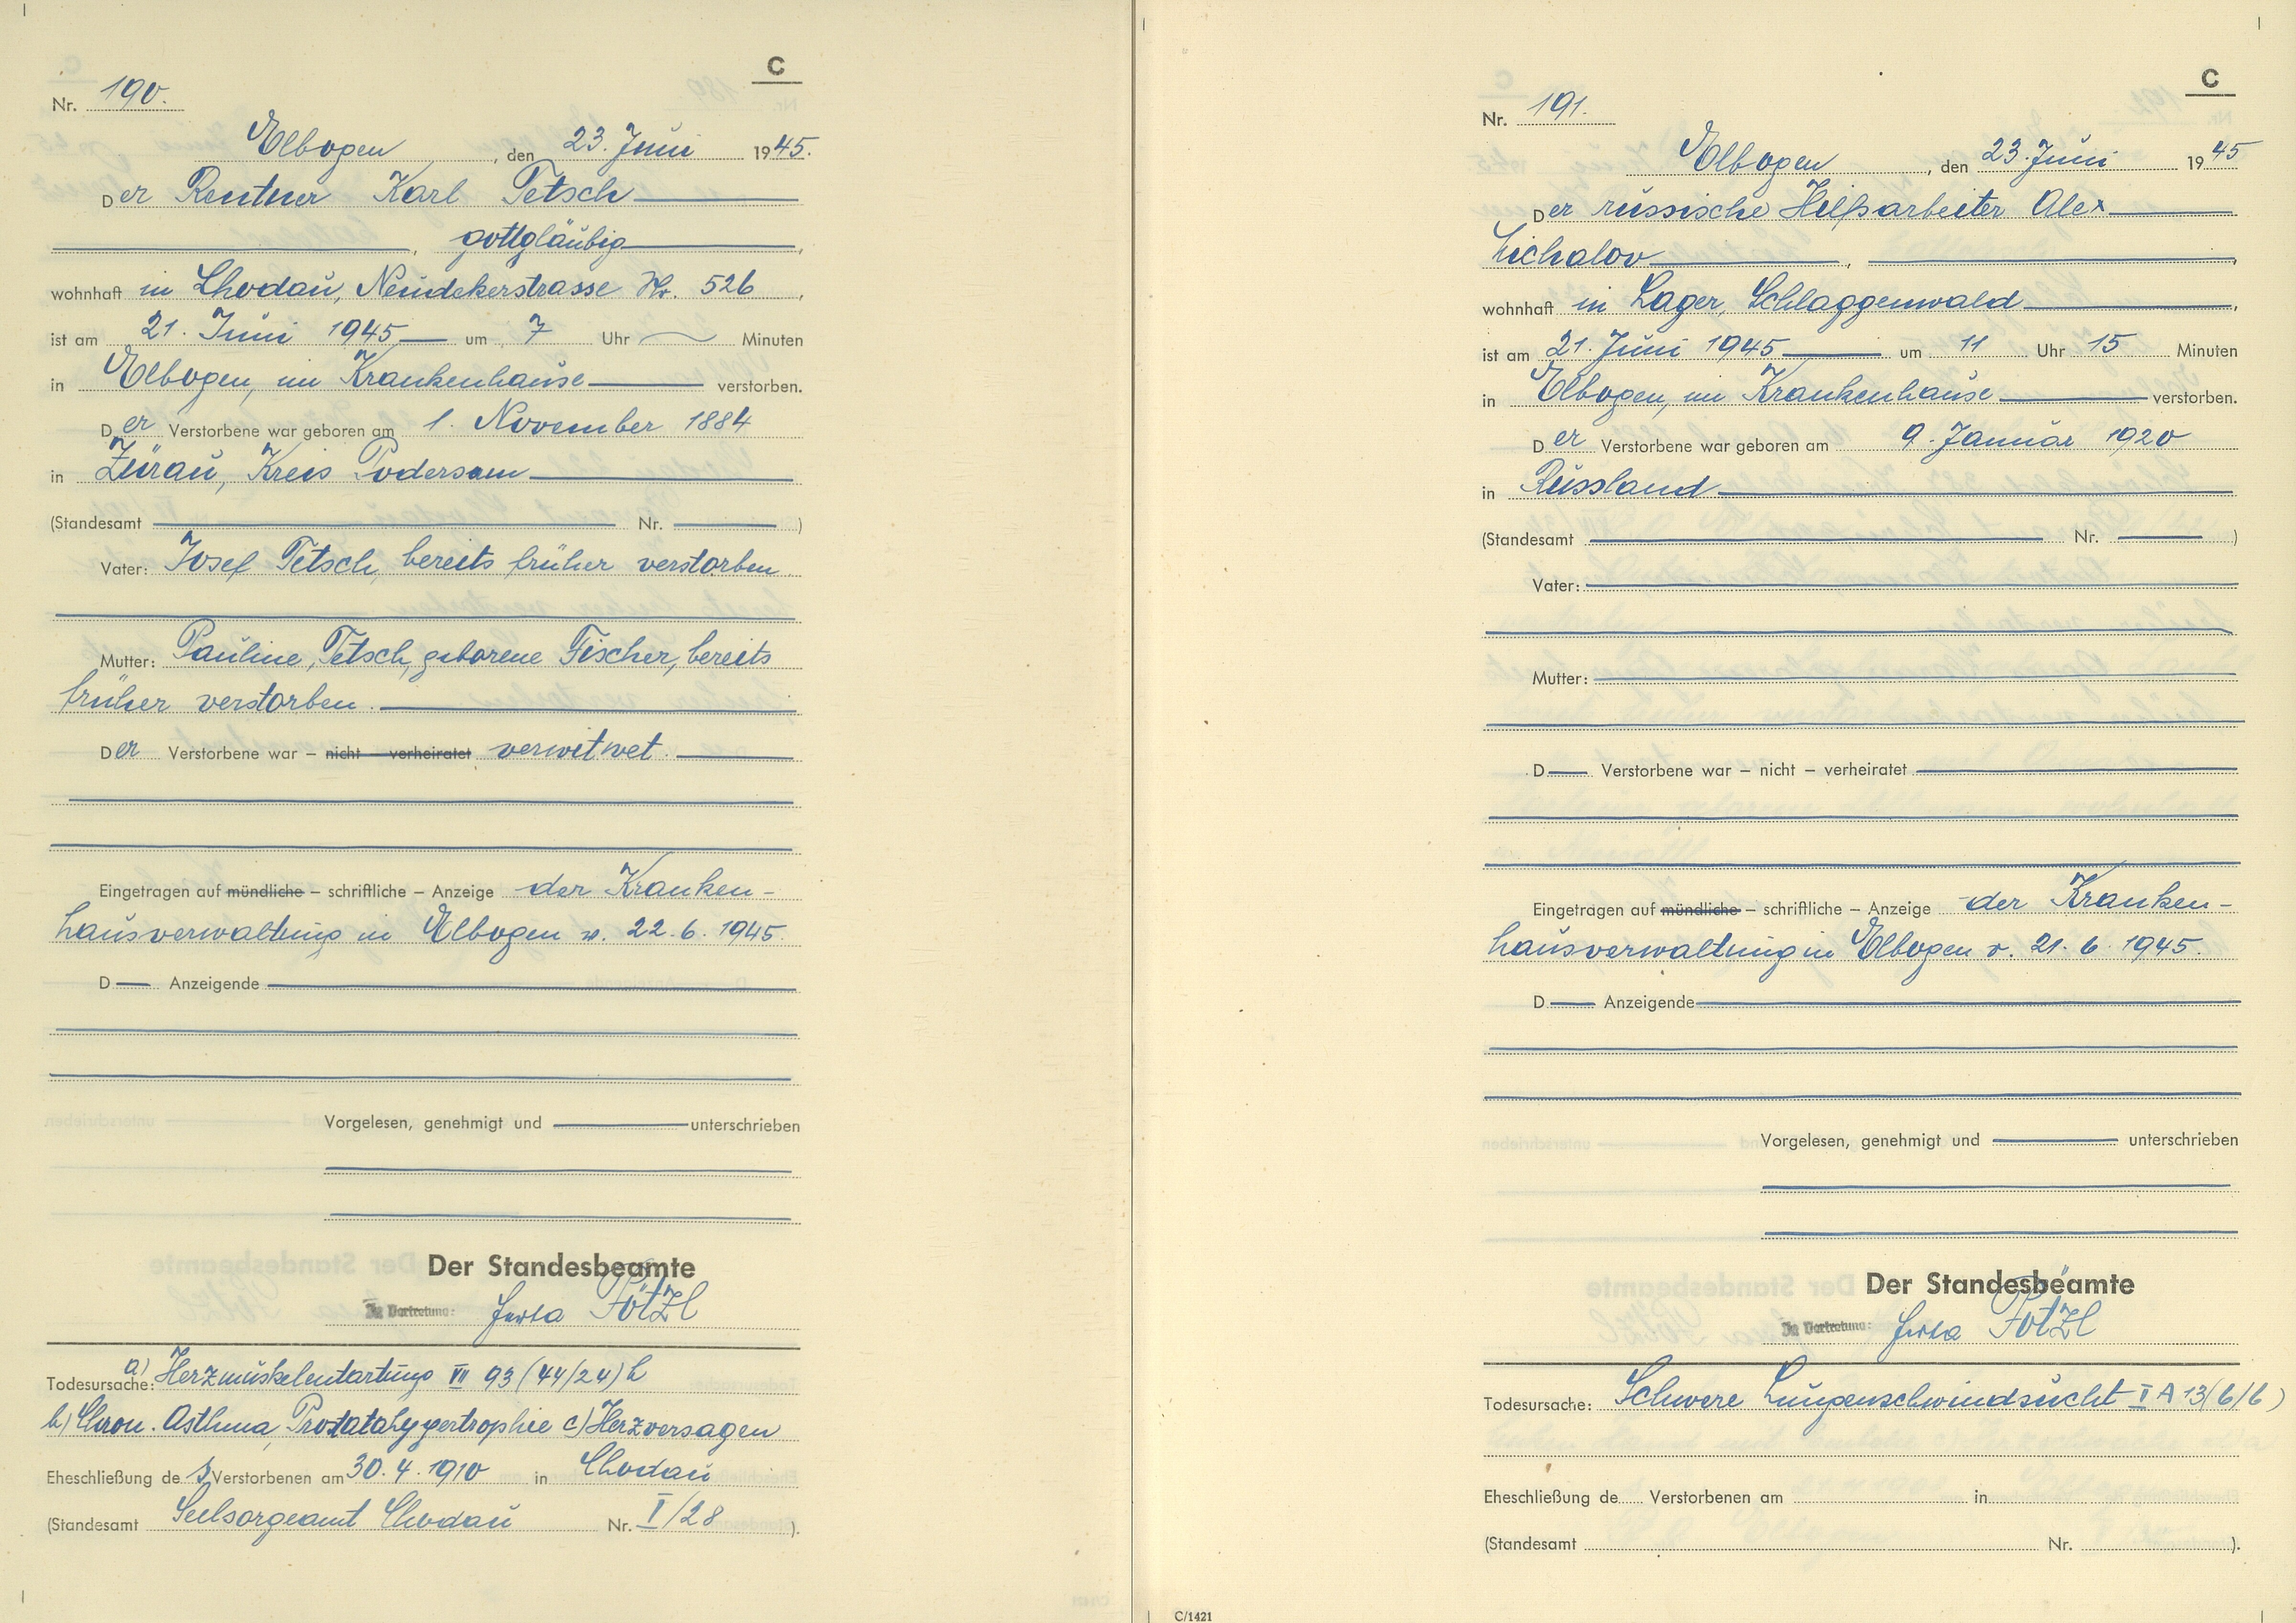 C
Nr. 190.
Elbogen, den 23. Juni 1945.
Der Rentner Karl Tetsch
, gottgläubig,
wohnhaft in Chodau, Neudekerstrasse Nr. 526,
ist am 21. Juni 1945 um 7 Uhr Minuten
in Elbogen, im Krankenhause verstorben.
Der Verstorbene war geboren am 1. November 1884
in Zürau, Kreis Podersam
(Standesamt Nr. )
Vater: Josef Tetsch, bereits früher verstorben.
Mutter: Pauline, Tetsch, geborene Fischer, bereits
früher verstorben.
Der Verstorbene war – nicht – verheiratet verwitwet.
Eingetragen auf mündliche – schriftliche – Anzeige der Kranken-
hausverwaltung in Elbogen v. 22.6.1945.
D Anzeigende
Vorgelesen, genehmigt und unterschrieben
Der Standesbeamte
In Vertretung: Pötzl
Todesursache: a) Herzmuskelentartung VII 93 (44/24) b
b) Chron. Asthma, Prostatahypertrophie c) Herzversagen
Eheschließung des Verstorbenen am 30.4.1910 in Chodau
(Standesamt Seelsorgeamt Chodau Nr. I/28 ).
C
Nr. 191.
Elbogen, den 23. Juni 1945
Der russische Hilfsarbeiter Alex
Lichalov, ,
wohnhaft in Lager, Schlaggenwald,
ist am 21. Juni 1945 um 11 Uhr 15 Minuten
in Elbogen, im Krankenhause verstorben.
Der Verstorbene war geboren am 9. Januar 1920
in Russland
(Standesamt Nr. )
Vater:
Mutter:
D Verstorbene war – nicht – verheiratet
Eingetragen auf mündliche – schriftliche – Anzeige der Kranken-
hausverwaltung in Elbogen v. 21.6.1945.
D Anzeigende
Vorgelesen, genehmigt und unterschrieben
Der Standesbeamte
In Vertretung: Pötzl
Todesursache: Schwere Lungenschwindsucht I A 13 (6/6)
Eheschließung de Verstorbenen am in
(Standesamt Nr. ).
C/1421